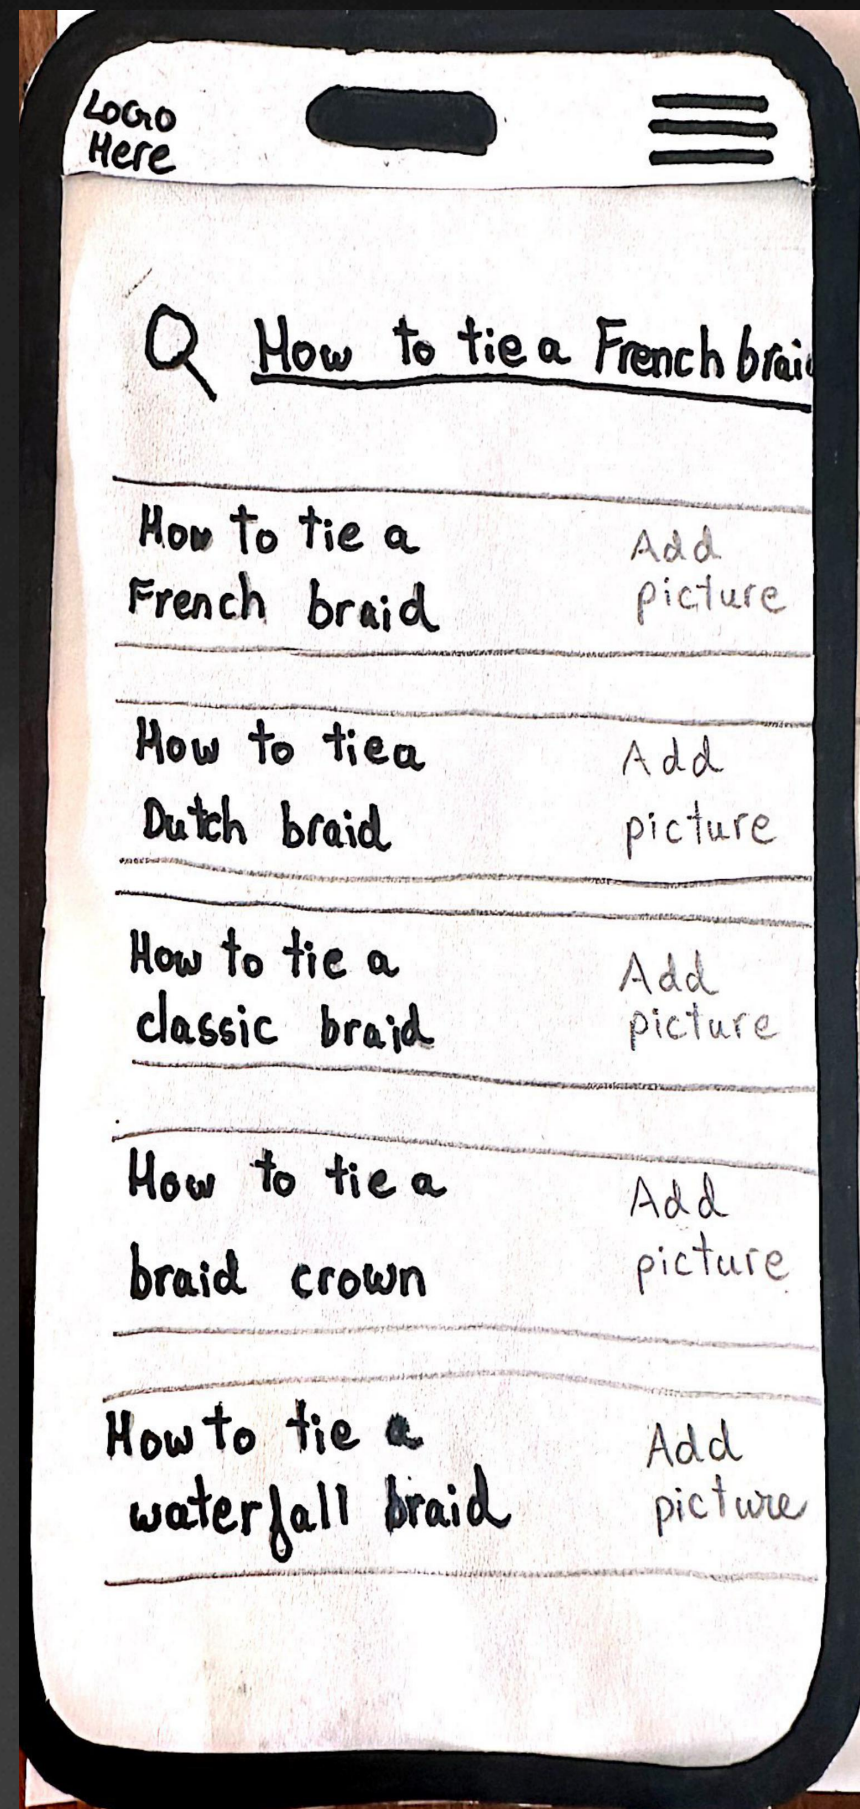 LOGO
Here
How to tie a French brai
How to tie a
French braid
Add
picture
How to tie a
Dutch braid
Add
picture
How to tie a
classic braid
Add
picture
How to tie a
braid crown
Add
picture
How to tie a
waterfall braid
Add
picture